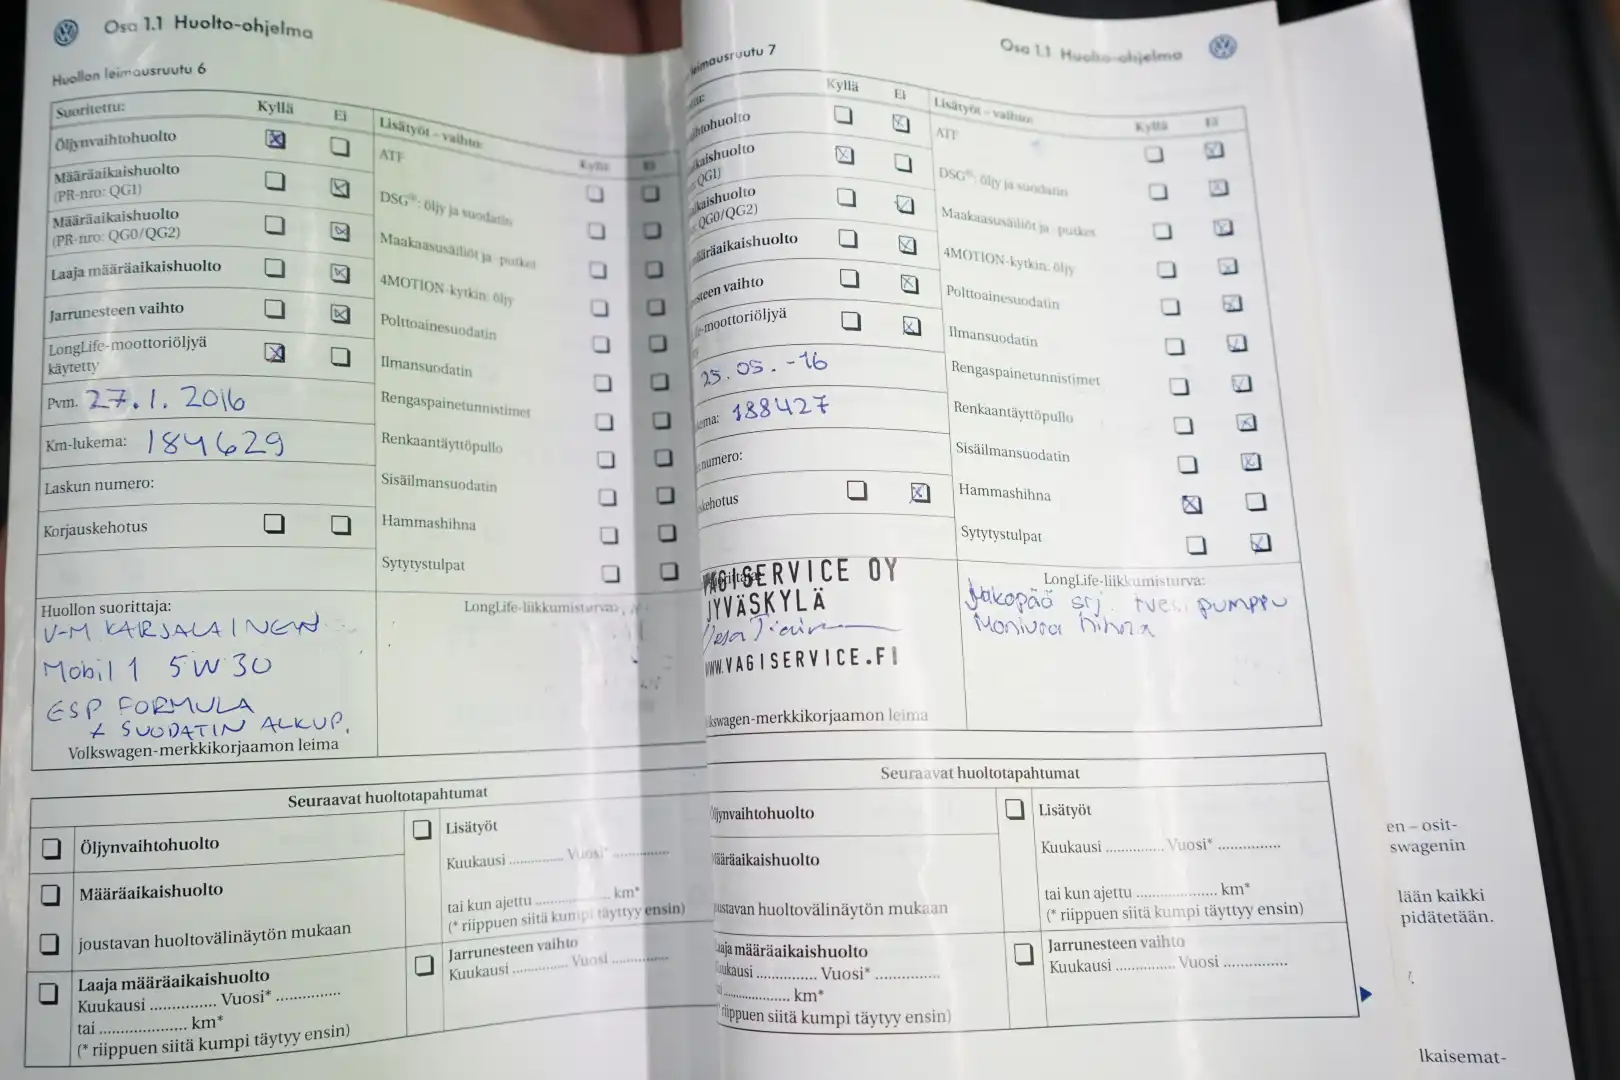 Osa 1.1 Huolto-ohjelma
Huollon leimausruutu 6
Suoritettu:
Kyllä
Ei
Öljynvaihtohuolto
Määräaikaishuolto
(PR-nro: QG1)
Määräaikaishuolto
(PR-nro: QG0/QG2)
Laaja määräaikaishuolto
Jarrunesteen vaihto
LongLife-moottoriöljyä
käytetty
Pvm. 27.1. 2016
Km-lukema: 184629
Laskun numero:
Korjauskehotus
Lisätyöt – vaihto:
Kyllä
Ei
ATF
DSG®: öljy ja suodatin
Maakaasusäiliöt ja -putket
4MOTION-kytkin: öljy
Polttoainesuodatin
Ilmansuodatin
Rengaspainetunnistimet
Renkaantäyttöpullo
Sisäilmansuodatin
Hammashihna
Sytytystulpat
Huollon suorittaja:
V-M KARJALAINEN
Mobil 1 5W30
ESP FORMULA
+ SUODATIN ALKUP.
Volkswagen-merkkikorjaamon leima
LongLife-liikkumisturva:
Seuraavat huoltotapahtumat
Öljynvaihtohuolto
Määräaikaishuolto
joustavan huoltovälinäytön mukaan
Laaja määräaikaishuolto
Kuukausi ............... Vuosi* ...............
tai .................... km*
(* riippuen siitä kumpi täytyy ensin)
Lisätyöt
Kuukausi .............. Vuosi* ..............
tai kun ajettu .................. km*
(* riippuen siitä kumpi täyttyy ensin)
Jarrunesteen vaihto
Kuukausi .............. Vuosi ..............
Osa 1.1 Huolto-ohjelma
leimausruutu 7
Kyllä
Ei
ihtohuolto
kaishuolto
QG1)
kaishuolto
QG0/QG2)
määräaikaishuolto
esteen vaihto
e-moottoriöljyä
25.05.-16
ema: 188427
numero:
kehotus
Lisätyöt – vaihto:
Kyllä
Ei
ATF
DSG®: öljy ja suodatin
Maakaasusäiliöt ja -putket
4MOTION-kytkin: öljy
Polttoainesuodatin
Ilmansuodatin
Rengaspainetunnistimet
Renkaantäyttöpullo
Sisäilmansuodatin
Hammashihna
Sytytystulpat
VAGISERVICE OY
JYVÄSKYLÄ
WWW.VAGISERVICE.FI
kswagen-merkkikorjaamon leima
LongLife-liikkumisturva:
Jakopää srj. +vesipumppu
Moniura hihna
Seuraavat huoltotapahtumat
ljynvaihtohuolto
ääräaikaishuolto
oustavan huoltovälinäytön mukaan
aaja määräaikaishuolto
uukausi .............. Vuosi* ...............
.................... km*
riippuen siitä kumpi täytyy ensin)
Lisätyöt
Kuukausi .............. Vuosi* ...............
tai kun ajettu .................... km*
(* riippuen siitä kumpi täyttyy ensin)
Jarrunesteen vaihto
Kuukausi .............. Vuosi ...............
en – osit-
swagenin
lään kaikki
pidätetään.
lkaisemat-